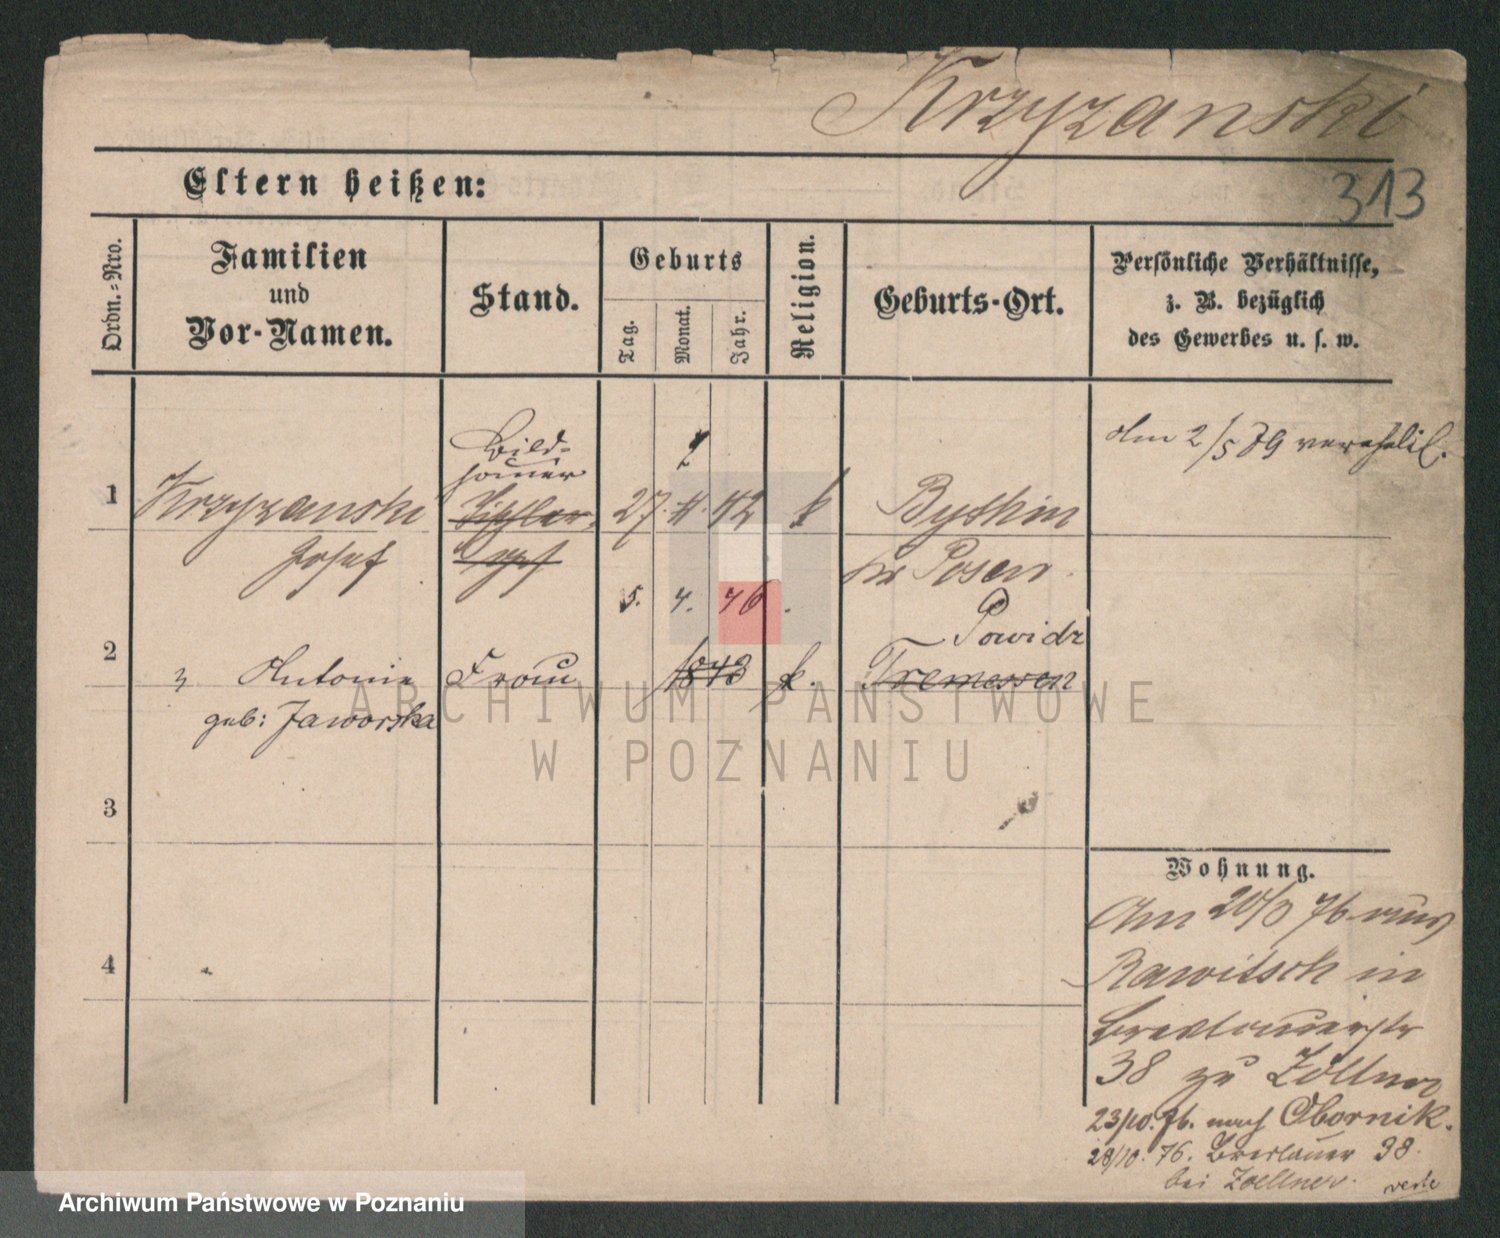 Krzyzanski
313
Eltern heißen:
Ordn.-Nro.
Familien
und
Vor-Namen.
Stand.
Geburts
Tag.
Monat.
Jahr.
Religion.
Geburts-Ort.
Persönliche Verhältnisse,
z. B. bezüglich
des Gewerbes u. s. w.
Bild-
hauer
1 Krzyzanski Tischler 27. 42 k Bythin
Josef
br Posen
Am 2/5 79 verehel.
5. 4. 46.
Powidz
2 Antonie Frau 1843 k. Tremessen
geb: Jaworska
3
4
Wohnung.
Am 20/ 76 aus
Rawitsch in
Breslauerstr
38 zu Zöllner
23/10. 76. nach Obornik.
28/10. 76. Breslauer 38.
bei Zoellner.
verte
ARCHIWUM PAŃSTWOWE
W POZNANIU
Archiwum Państwowe w Poznaniu